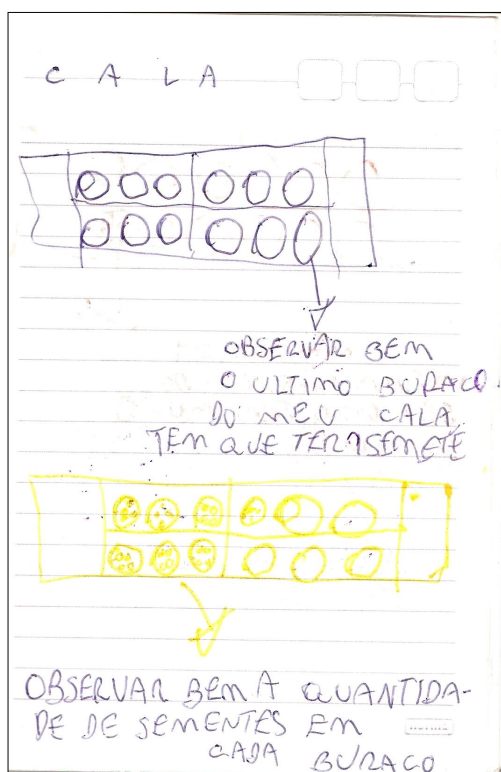 C A L A
OBSERVAR BEM
O ULTIMO BURACO
DO MEU CALA
TEM QUE TER 1 SEMETE
OBSERVAR BEM A QUANTIDA-
DE DE SEMENTES EM
CADA BURACO